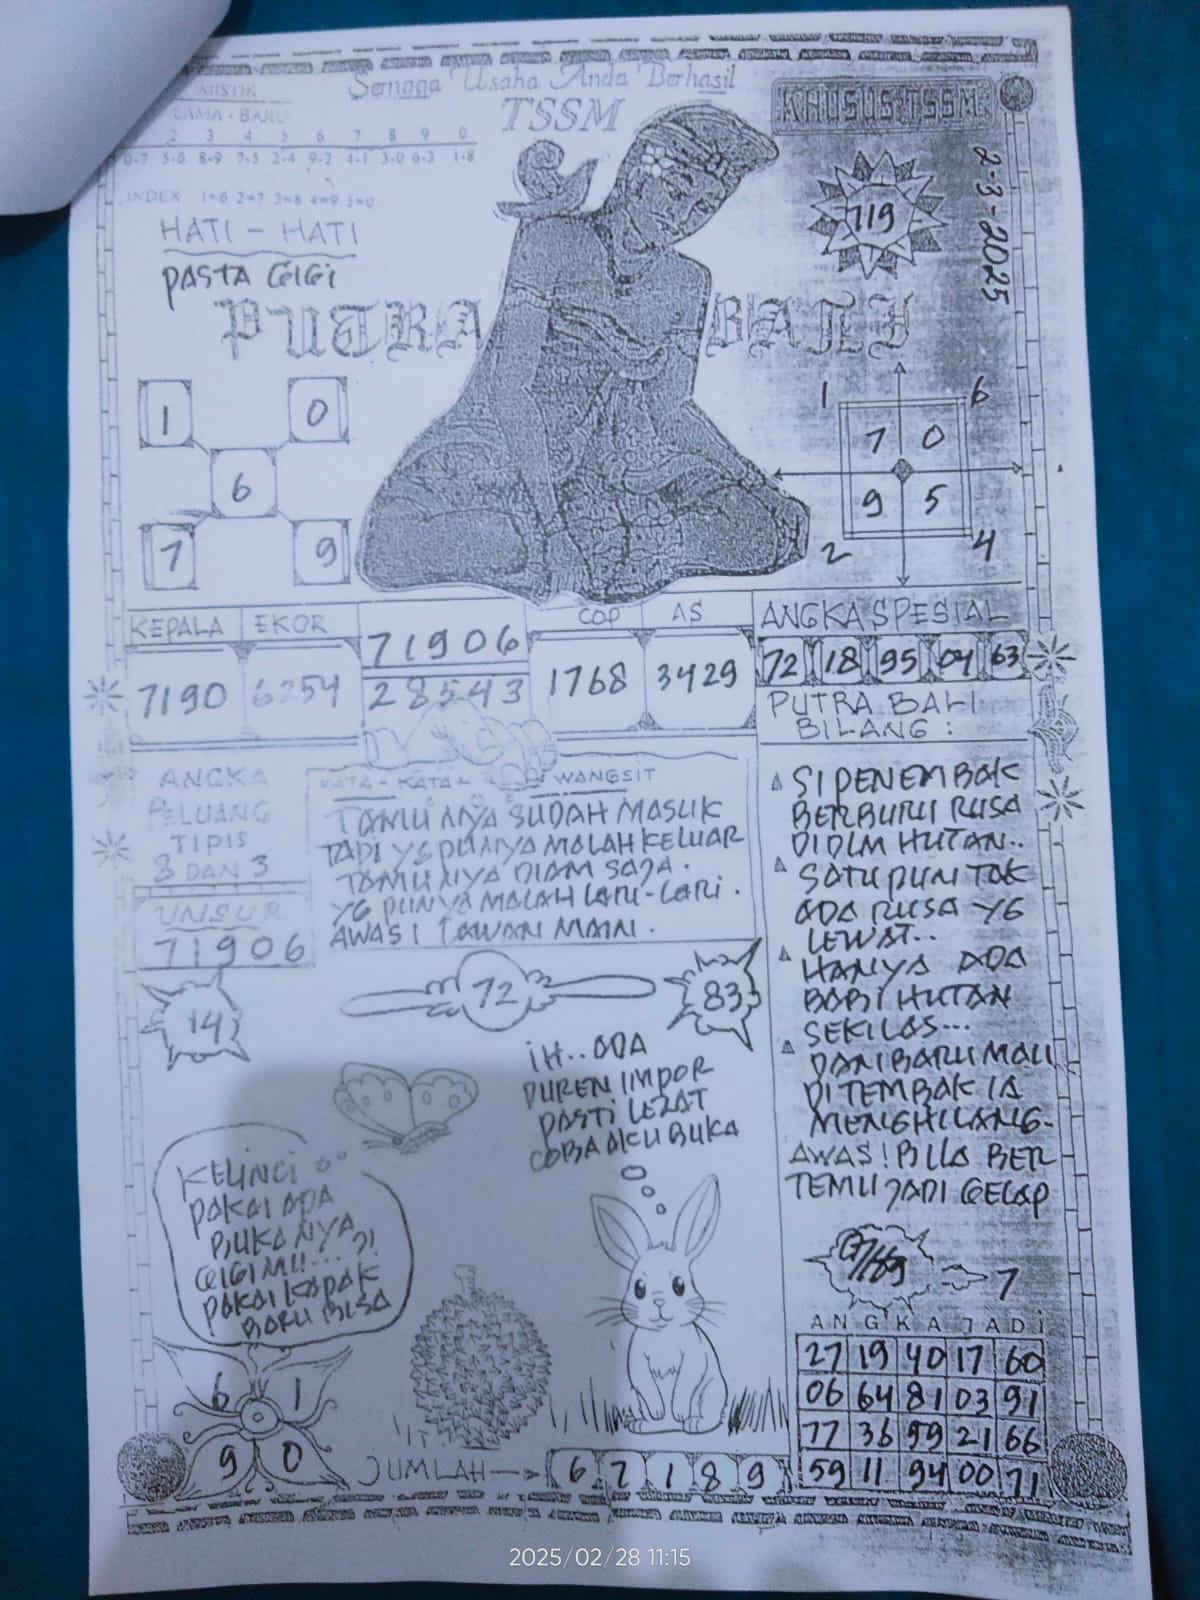 Semoga Usaha Anda Berhasil
TSSM
KHUSUS TSSM
MISTIK
LAMA - BARU
2 3 4 5 6 7 8 9 0
0-7 5-6 8-9 7-5 2-4 9-2 4-1 3-0 6-3 1-8
INDEX 1=6 2=7 3=8 4=9 5=0
HATI - HATI
PASTA GIGI
719
2-3-2025
PUTRA BALI
1 0
6
7 9
1 6
7 0
9 5
2 4
KEPALA EKOR COP AS
7190 6254 71906 1768 3429
28543
ANGKA SPESIAL
72 18 95 04 63
PUTRA BALI
BILANG :
ANGKA
PELUANG
TIPIS
8 DAN 3
UNSUR
71906
KATA - KATA WANGSIT
TAMU NYA SUDAH MASUK
TADI YG PUNYA MALAH KELUAR
TAMU NYA DIAM SAJA.
YG PUNYA MALAH LARI-LARI.
AWAS! LAWAN MAIN.
SI PENEMBAK
BERBURU RUSA
DIDLM HUTAN..
SATU PUN TAK
ADA RUSA YG
LEWAT..
HANYA ADA
BABI HUTAN
SEKILAS...
DAN BARU MAU
DI TEMBAK IA
MENGHILANG.
AWAS! BILA BER
TEMU JADI GELAP
14
72
83
IH.. ADA
DUREN IMPOR
PASTI LEZAT
COBA AKU BUKA
KELINCI
PAKAI APA
BUKA NYA
GIGIMU...?!
PAKAI KAPAK
BARU BISA
7
ANGKA JADI
27 19 40 17 60
06 64 81 03 91
77 36 99 21 66
59 11 94 00 71
6 1
9 0
JUMLAH 6 7 1 8 9
2025/02/28 11:15